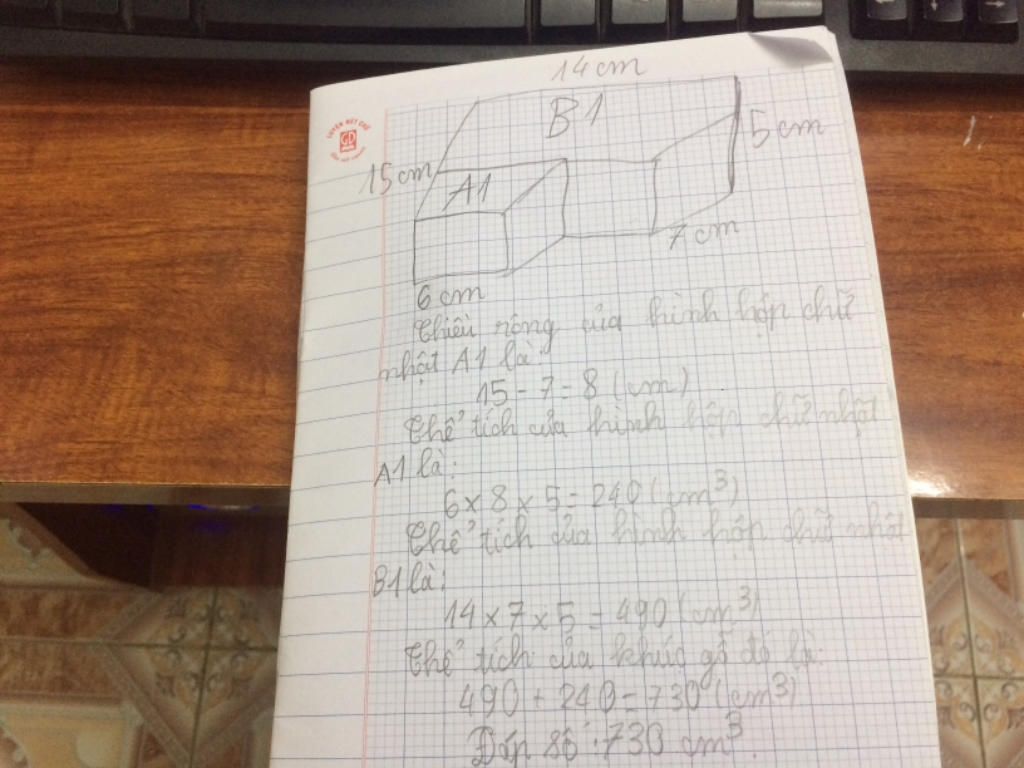 14 cm
B1
5 cm
LUYỆN NÉT CHỮ
GD
15 cm
A1
7 cm
6 cm
Chiều rộng của hình hộp chữ
nhật A1 là:
15 - 7 = 8 (cm)
Thể tích của hình hộp chữ nhật
A1 là:
6 x 8 x 5 = 240 (cm³)
Thể tích của hình hộp chữ nhật
B1 là:
14 x 7 x 5 = 490 (cm³)
Thể tích của khúc gỗ đó là:
490 + 240 = 730 (cm³)
Đáp số: 730 cm³.